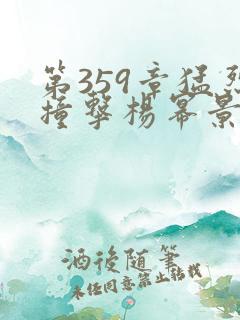 第359章猛烈
撞擊楊冪景
酒後随筆
未经同意禁止转载